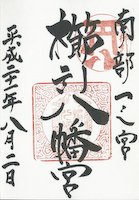 南部一之宮
櫛引八幡宮
平成二十一年八月二日